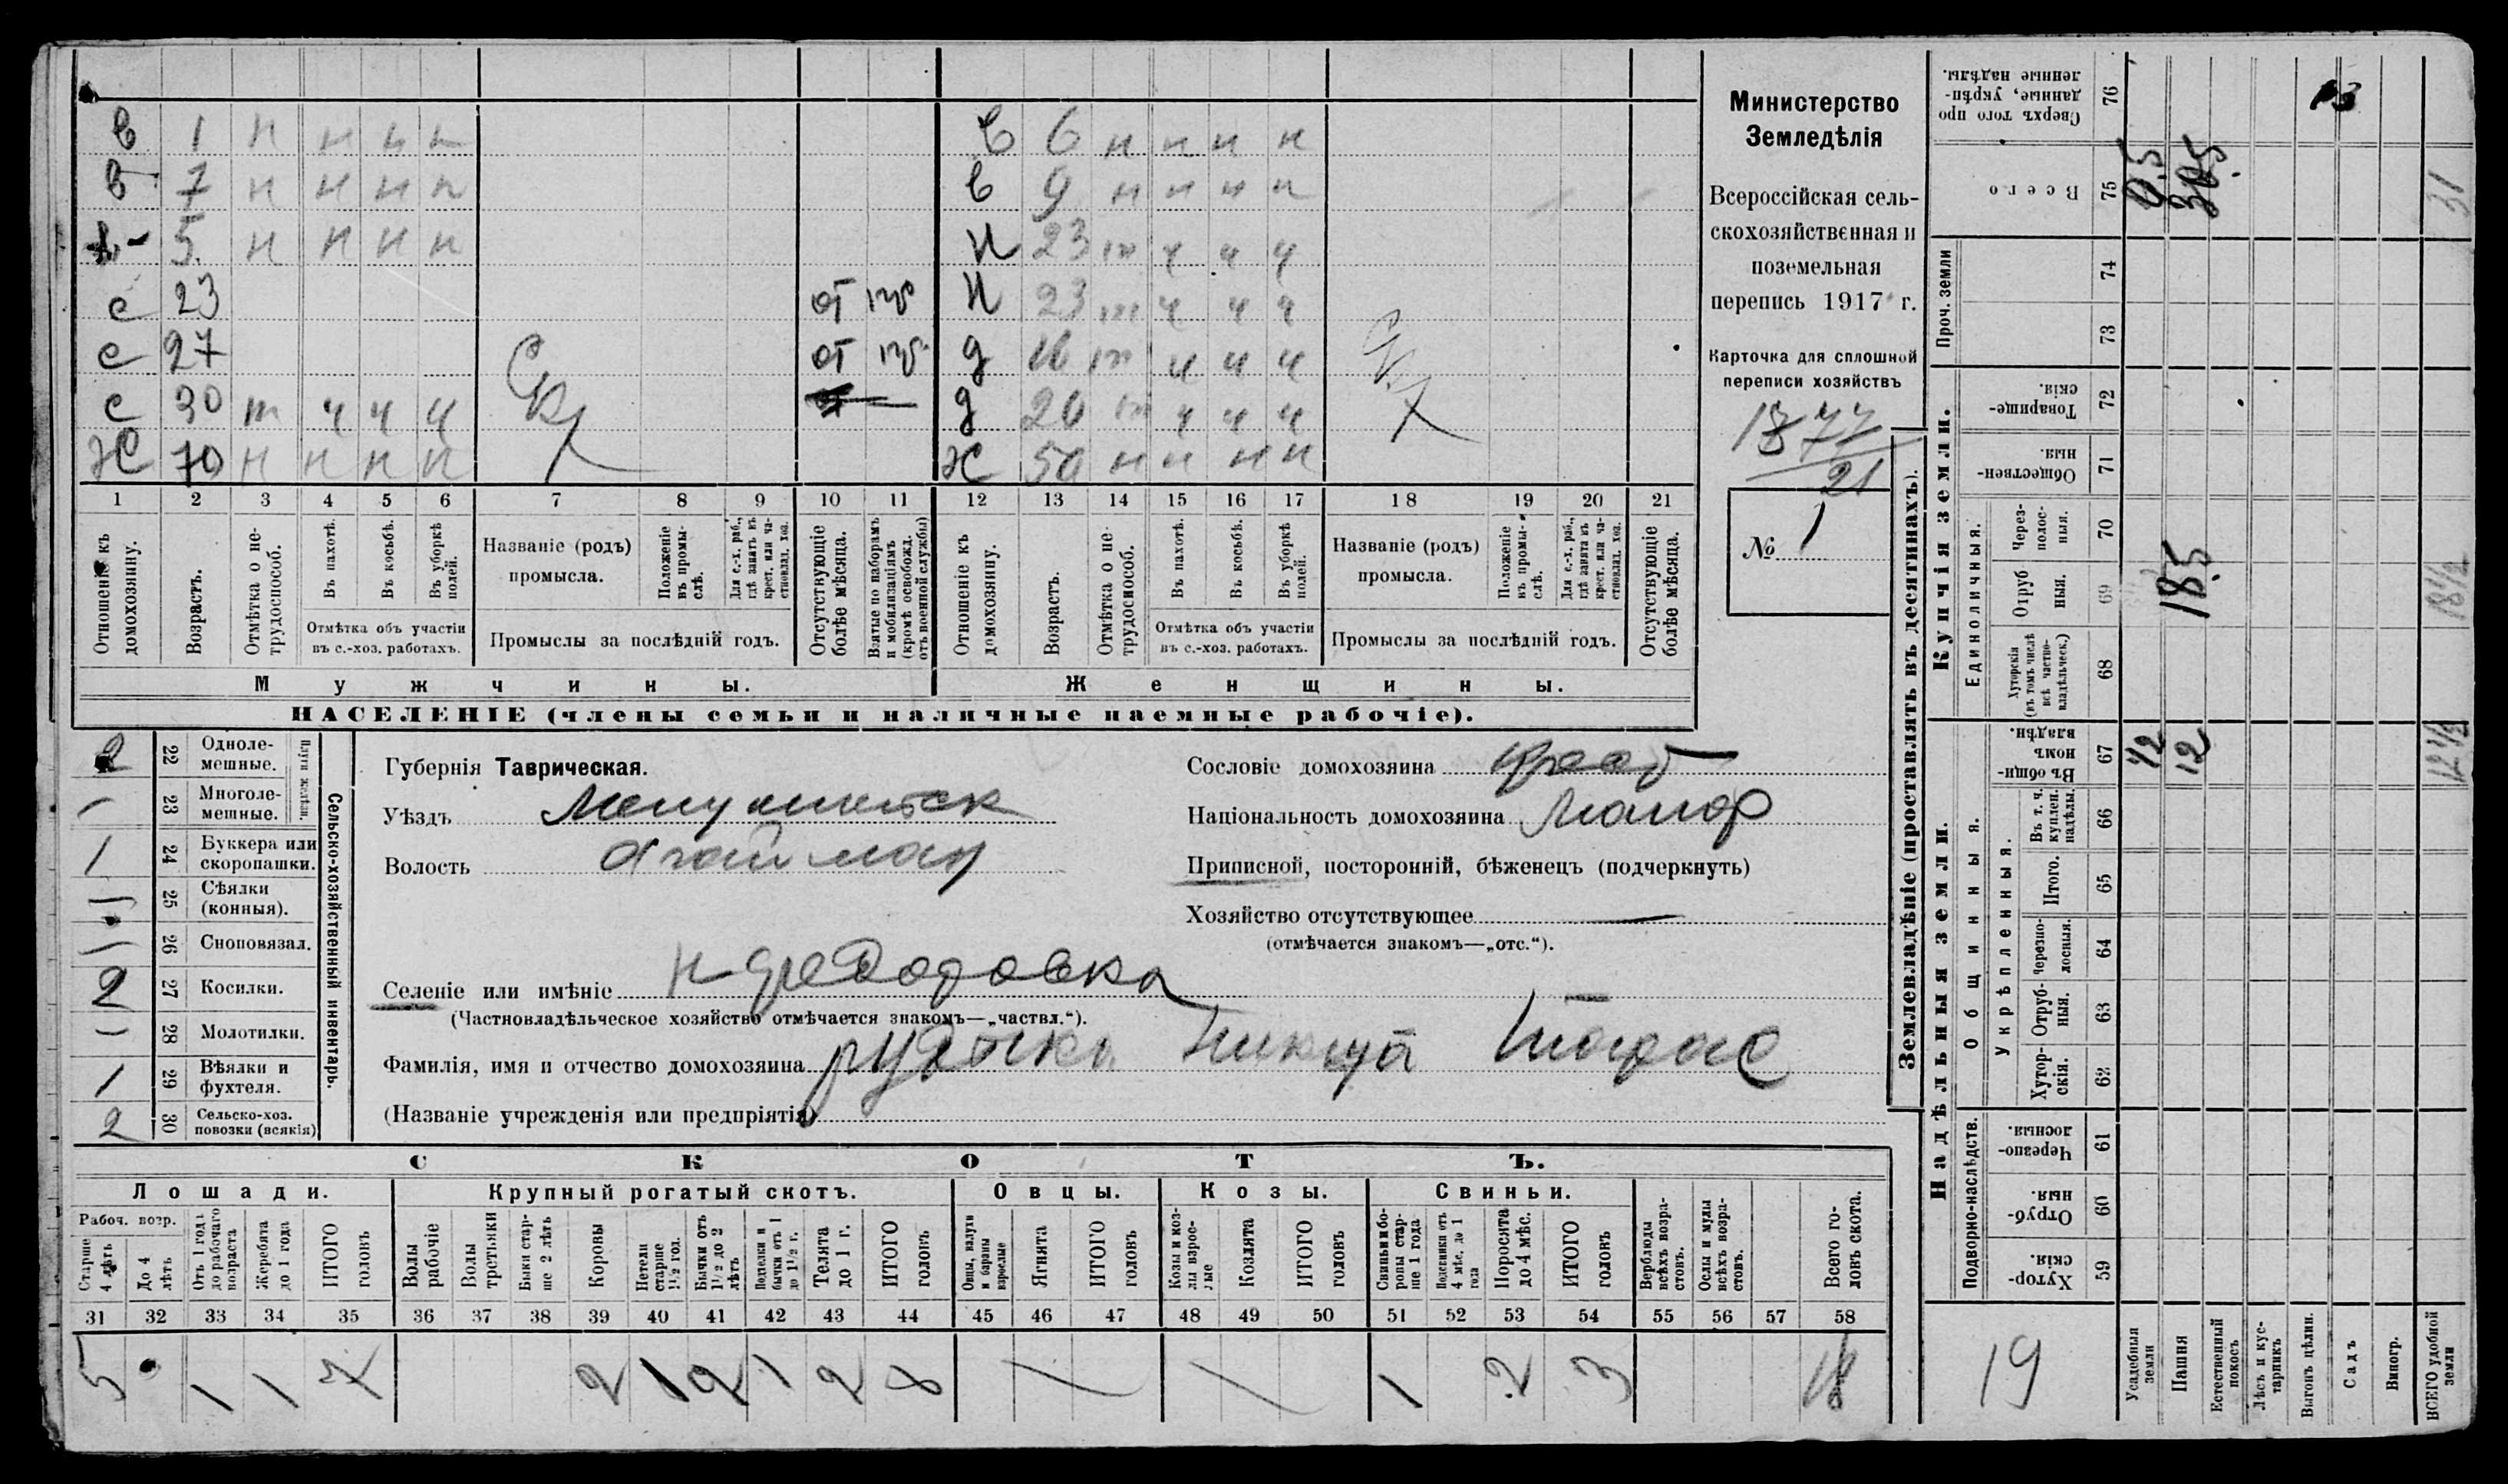 в 1 н н н н
в 7 н н н н
5 н н н н
с 23 от
с 27 от
с 30 т ч ч ч
Ж 70 н н н н
в 6 н н н н
в 9 н н н н
Н 23 т ч ч ч
Н 23 т ч ч ч
д 16 т ч ч ч
д 20 т ч ч ч
Ж 50 н н н н
1 2 3 4 5 6 7 8 9 10 11 12 13 14 15 16 17 18 19 20 21
Отношеніе къ домохозяину.
Возрастъ.
Отмѣтка о нетрудоспособ.
Въ пахотѣ.
Въ косьбѣ.
Въ уборкѣ полей.
Отмѣтка объ участіи
въ с.-хоз. работахъ.
Названіе (родъ)
промысла.
Положеніе въ промыслѣ.
Для с.-х. раб., гдѣ занятъ въ крест. или частновлад. хоз.
Промыслы за послѣдній годъ.
Отсутствующіе болѣе мѣсяца.
Взятые по наборамъ и мобилизаціямъ (кромѣ освобожд. отъ военной службы)
Отношеніе къ домохозяину.
Возрастъ.
Отмѣтка о нетрудоспособ.
Въ пахотѣ.
Въ косьбѣ.
Въ уборкѣ полей.
Отмѣтка объ участіи
въ с.-хоз. работахъ.
Названіе (родъ)
промысла.
Положеніе въ промыслѣ.
Для с.-х. раб., гдѣ занята въ крест. или частновлад. хоз.
Промыслы за послѣдній годъ.
Отсутствующіе болѣе мѣсяца.
Мужчины.
Женщины.
НАСЕЛЕНІЕ (члены семьи и наличные наемные рабочіе).
Министерство
Земледѣлія
Всероссійская сель-
скохозяйственная и
поземельная
перепись 1917 г.
Карточка для сплошной
переписи хозяйствъ
21
№ 1
2 22 Одноле-
мешные.
23 Многоле-
мешные.
Плуги желѣзн.
1 24 Буккера или
скоропашки.
25 Сѣялки
(конныя).
26 Сноповязал.
2 27 Косилки.
28 Молотилки.
1 29 Вѣялки и
фухтеля.
2 30 Сельско-хоз.
повозки (всякія)
Сельско-хозяйственный инвентарь.
Губернія Таврическая.
Уѣздъ
Волость
Селеніе или имѣніе
(Частновладѣльческое хозяйство отмѣчается знакомъ—„частвл.“).
Фамилія, имя и отчество домохозяина
(Названіе учрежденія или предпріятія)
Сословіе домохозяина
Національность домохозяина
Приписной, посторонній, бѣженецъ (подчеркнуть)
Хозяйство отсутствующее —
(отмѣчается знакомъ—„отс.“).
СКОТЪ.
Лошади.
Крупный рогатый скотъ.
Овцы.
Козы.
Свиньи.
Рабоч. возр.
Старше 4 лѣтъ
До 4 лѣтъ
Отъ 1 года до рабочаго возраста
Жеребята до 1 года
ИТОГО головъ
Волы рабочіе
Волы третьяки
Быки старше 2 лѣтъ
Коровы
Нетели старше 1½ год.
Бычки отъ 1½ до 2 лѣтъ
Телки и бычки отъ 1 до 1½ г.
Телята до 1 г.
ИТОГО головъ
Овцы, валухи и бараны взрослые
Ягнята
ИТОГО головъ
Козы и козлы взрослые
Козлята
ИТОГО головъ
Свиньи и боровы старше 1 года
Подсвинки отъ 4 мѣс. до 1 года
Поросята до 4 мѣс.
ИТОГО головъ
Верблюды всѣхъ возрастовъ.
Ослы и мулы всѣхъ возрастовъ.
Всего головъ скота.
31 32 33 34 35 36 37 38 39 40 41 42 43 44 45 46 47 48 49 50 51 52 53 54 55 56 57 58
5 1 1 7 2 1 2 1 2 8 1 2 3 18
Землевладѣніе (проставлять въ десятинахъ).
Надѣльныя земли.
Купчія земли.
Проч. земли
Подворно-наслѣдств.
Общинныя.
Укрѣпленныя.
Единоличныя.
Сверхъ того проданные, укрѣпленные надѣлы. 76
Всего 75
74
73
Товарищескія. 72
Общественныя. 71
Черезполосныя. 70
Отрубныя. 69
Хуторскія (въ томъ числѣ всѣ частновладѣльческ.) 68
Въ общинномъ владѣн. 67
Въ т. ч. куплен. надѣлы. 66
Итого. 65
Черезполосныя. 64
Отрубныя. 63
Хуторскія. 62
Черезполосныя. 61
Отрубныя. 60
Хуторскія. 59
31
18,5
18½
½
12
12½
19
Усадебныя земли
Пашня
Естественный покосъ
Лѣсъ и кустарникъ
Выгонъ цѣлин.
Садъ
Виногр.
ВСЕГО удобной земли